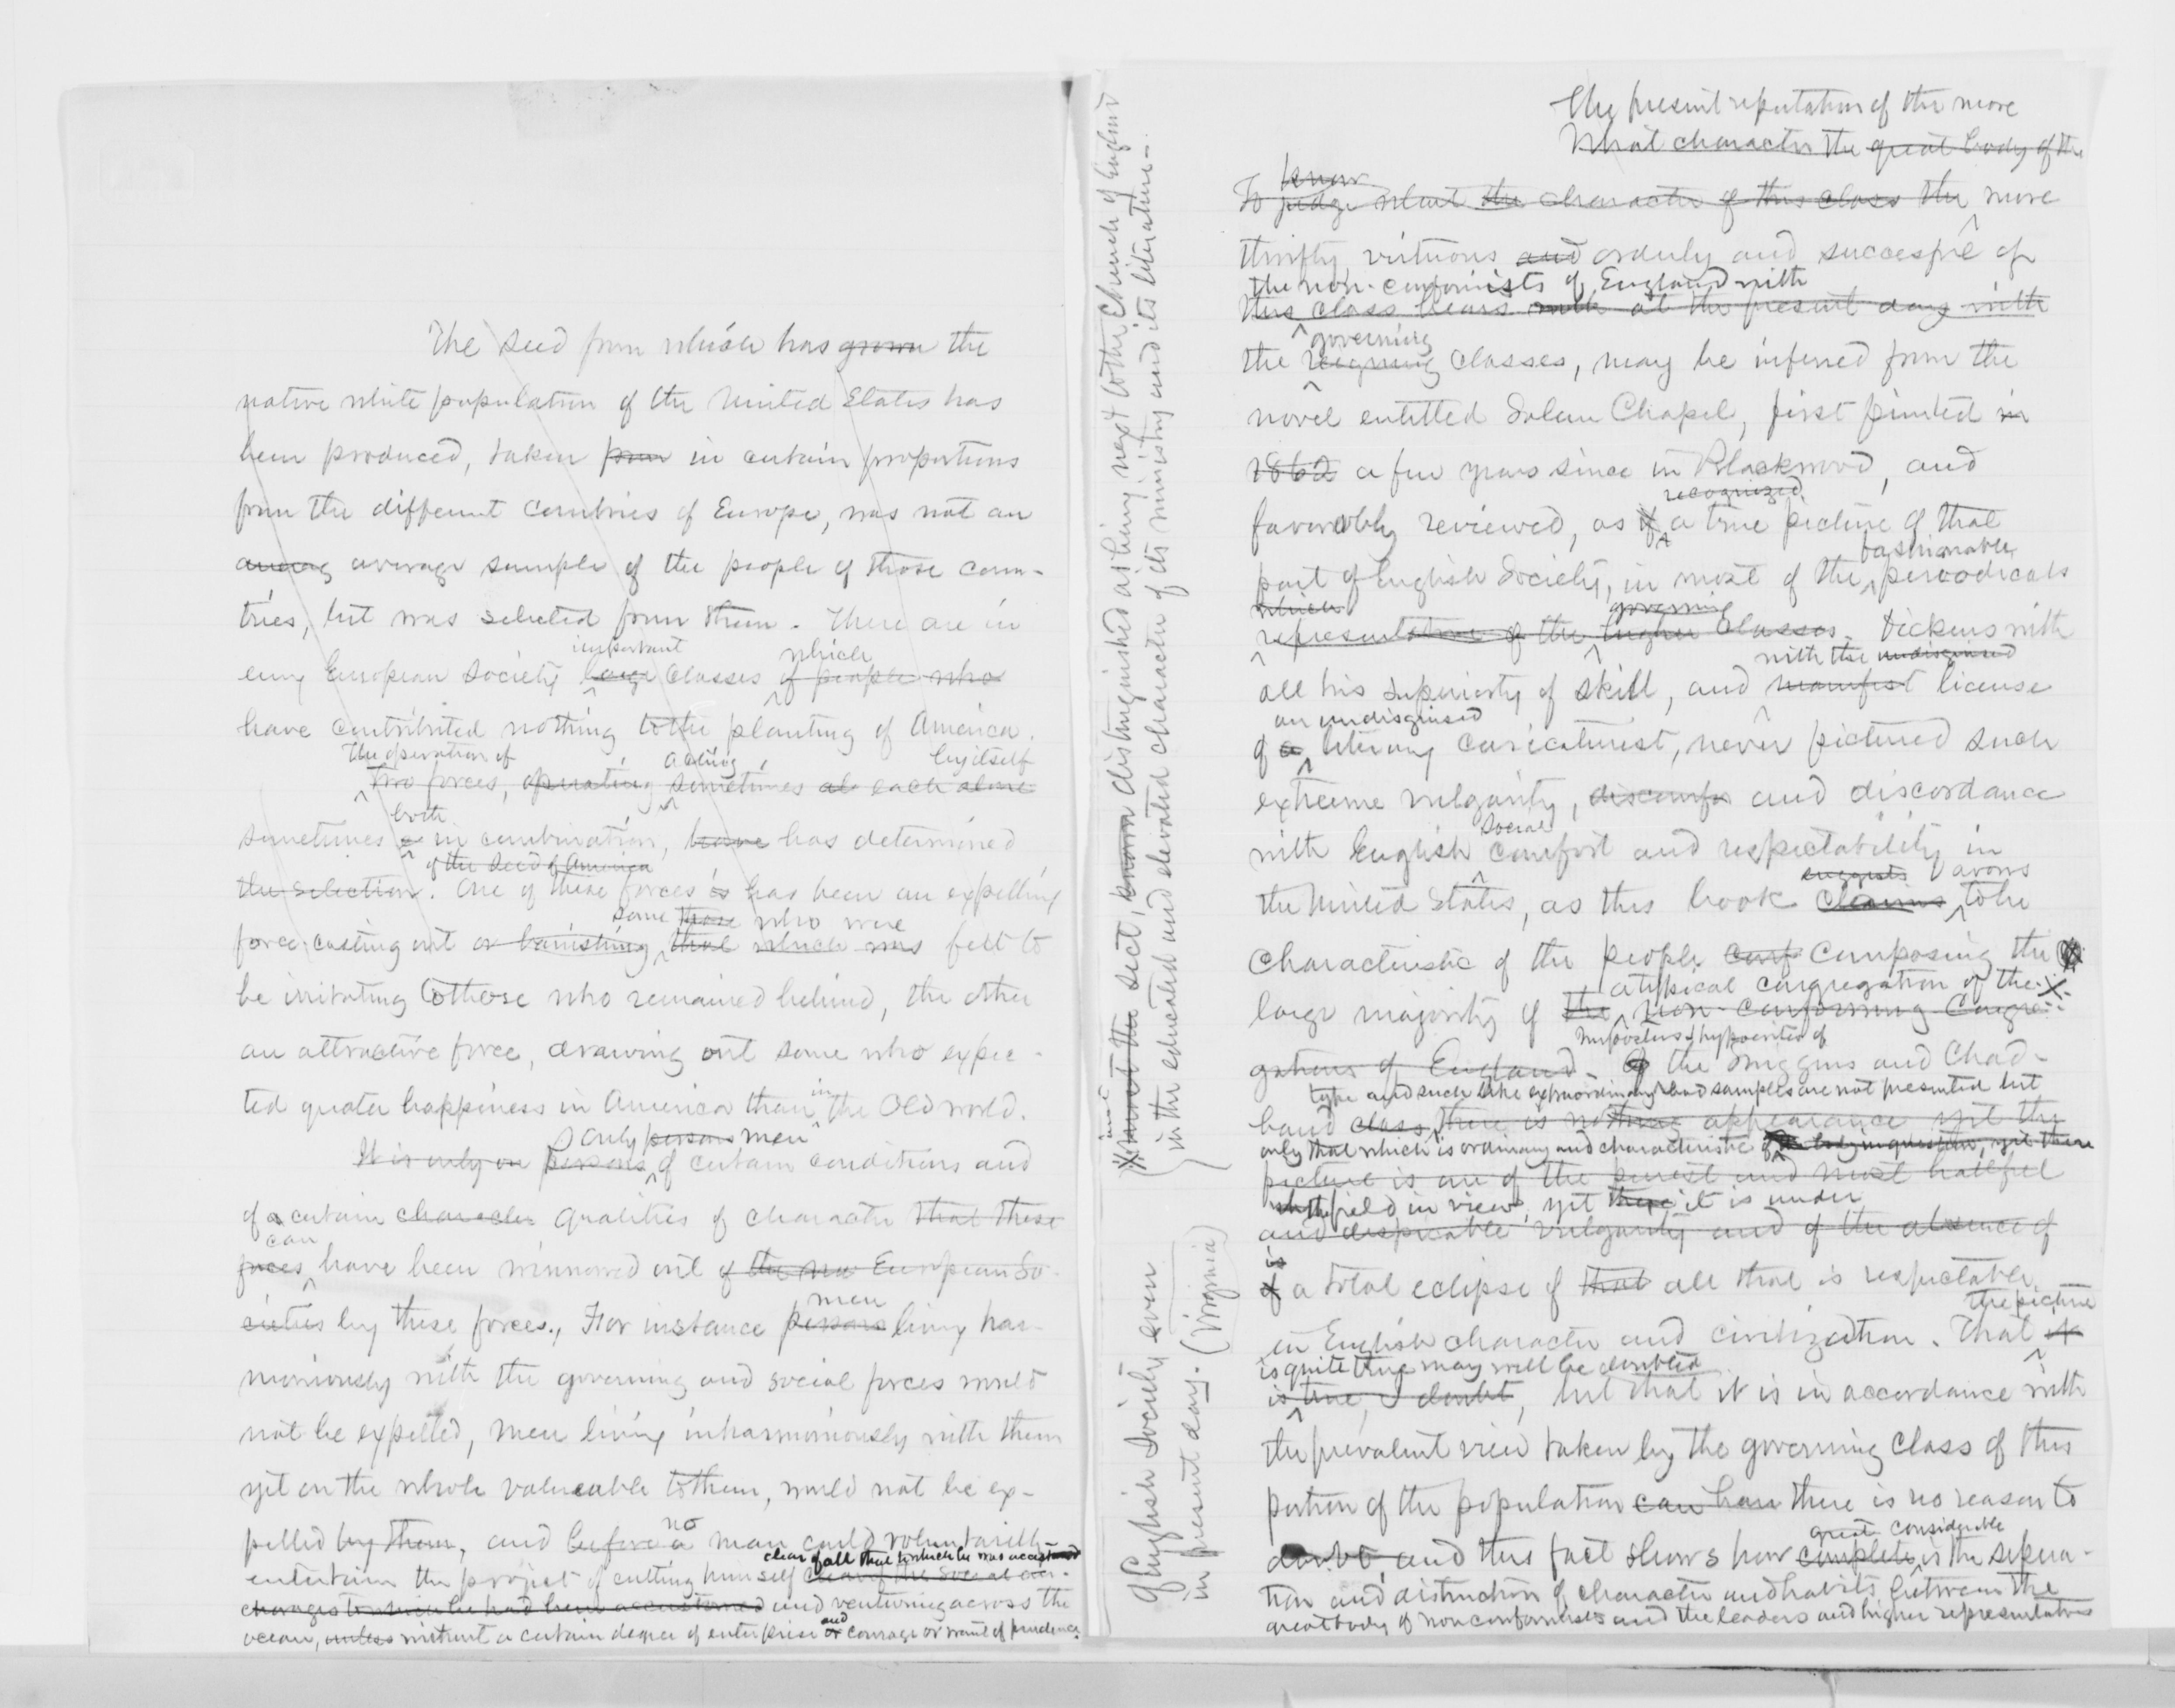 The seed from which has grown the
native white population of the United States has
been produced, taken from in certain proportions
from the different countries of Europe, was not an
averag average sample of the people of those coun-
tries, but was selected from them. There are in
important which
every European Society large classes of people who
have contributed nothing to the planting of America.
The operation of acting by itself
Two forces, operating sometimes each alone
both
sometimes in combination, have has determined
of the seed of America
the selection. One of these forces is has been an expelling
some those who were
force casting out or banishing that which was felt to
be irritating to those who remained behind, the other
an attractive force, drawing out some who expec-
ted greater happiness in America than in the Old world.
only persons men
It is only on persons of certain conditions and
of a certain character qualities of character that these
can
forces have been winnowed out of the European So-
men
cieties by these forces. For instance persons living har-
moniously with the governing and social forces would
not be expelled, men living inharmoniously with them
yet on the whole valueable to them, would not be ex-
no
pelled by them, and before a man could voluntarily
clear of all that to which he was accustomed
entertain the project of cutting himself clear of the social
to which he had been accustomed and venturing across the
and
ocean, unless without a certain degree of enterprise or courage or want of prudence.
and sect, known distinguished as being next to the Church of England
in the educated and elevated character of its ministry and its literature.
of English Society even
in present day. (Virginia)
The present reputation of the more
What character the great body of the
know
To judge what the character of this class the more
thrifty, virtuous and orderly and successful of
the non-conformists of England with
this class bears with at the present day with
governing
the reigning classes, may be inferred from the
novel entitled Salem Chapel, first printed in
1862 a few years since in Blackwood, and
recognized
favorably reviewed, as if a true picture of that
fashionable
part of English Society, in most of the periodicals
which governing
representative of the higher Classes. Dickens with
with the undisguised
all his superiority of skill, and manifest license
an undisguised
of a literary caricaturist, never pictured such
extreme vulgarity, discomfor and discordance
social
with English comfort and respectability in
suggests avows
the United States, as this book claims to be
characteristic of the people comp composing the
a typical congregation of the
large majority of the non-conforming Congre-
impostors & hypocrites of
gations of England. Of the Stiggins and Chad-
type and such like extraordinary bad samples are not presented but
band class, there is nothing appearance yet the
only that which is ordinary and characteristic of the body in question, yet there
picture is one of the purest and most hateful
field in view, yet there it is under
and despicable vulgarity and of the absence of
is
of a total eclipse of that all that is respectable
the picture
in English character and civilization. That it
is quite true may well be doubted
is true, I doubt, but that it is in accordance with
the prevalent view taken by the governing class of this
portion of the population can have there is no reason to
great considerable
doubt, and this fact shows how complete is the separa-
tion and distinction of character and habits between the
great body of nonconformists and the leaders and higher representatives